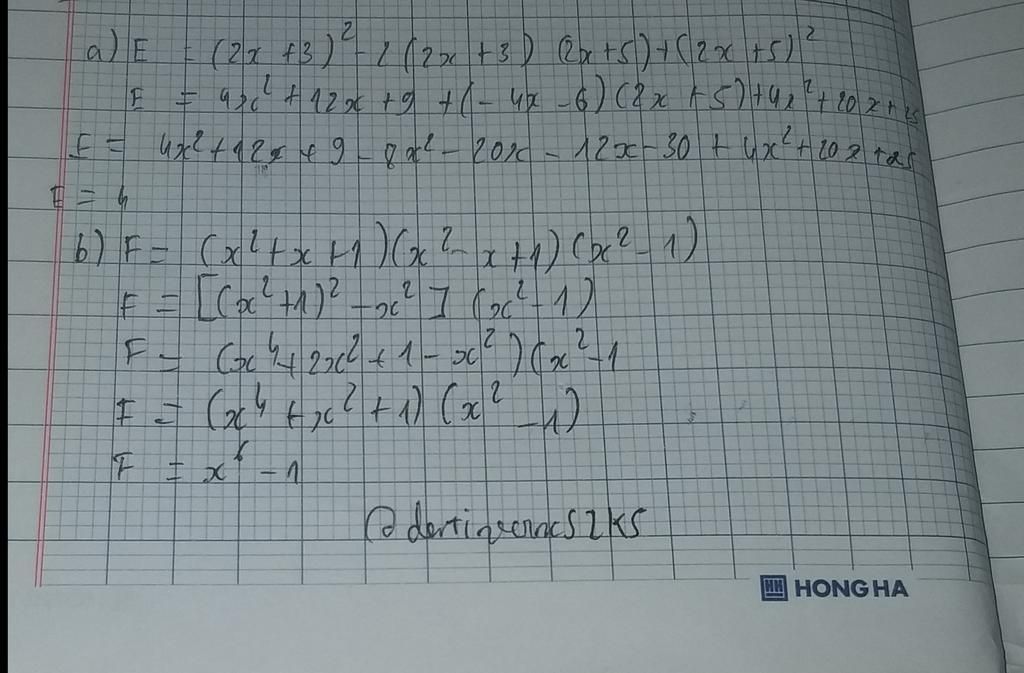 a) E = (2x + 3)² - 2 (2x + 3) (2x + 5) + (2x + 5)²
E = 4x² + 12x + 9 + (- 4x - 6) (2x + 5) + 4x² + 20x + 25
E = 4x² + 12x + 9 - 8x² - 20x - 12x - 30 + 4x² + 20x + 25
E = 4
b) F = (x² + x + 1)(x² - x + 1)(x² - 1)
F = [(x² + 1)² - x²] (x² - 1)
F = (x⁴ + 2x² + 1 - x²)(x² - 1
F = (x⁴ + x² + 1) (x² - 1)
F = x⁶ - 1
HONG HA